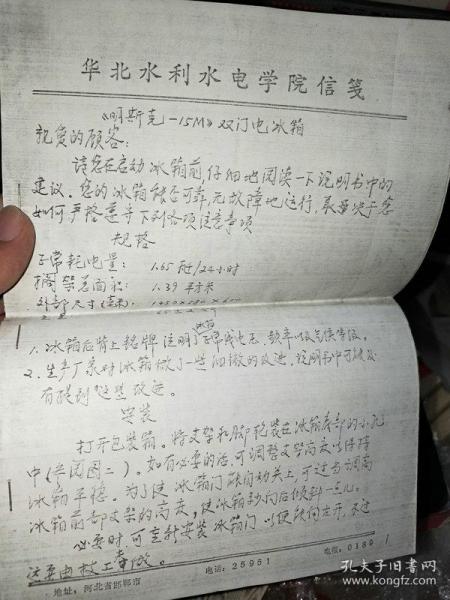 华北水利水电学院信笺
《明斯克-15M》双门电冰箱
亲爱的顾客:
请您在启动冰箱前仔细地阅读一下说明书中的
建议。您的冰箱能否可靠,无故障地运行,取决于您
如何严格遵守下列各项注意事项
规格
正常耗电量: 1.65 /24小时
搁架总面积: 1.39 平方米
外部尺寸(毫米):
1. 冰箱后背上铭牌注明了冰箱
2. 生产厂家对冰箱做了一些细微的改进,说明书中可能没
有提到这些改进。
安装
打开包装箱。将支架和脚轮装在冰箱底部的小孔
中(参阅图二)。如有必要的话,可调整支架高度以保障
冰箱平稳。为了使冰箱门能自动关上,可适当调高
冰箱前部支架的高度,使冰箱稍向后倾斜一点儿。
必要时可重新安装冰箱门以便能向左开,不过
这要由技工来做。
地址:河北省邯郸市 电话:25951 电报:0189
孔夫子旧书网
kongfz.com